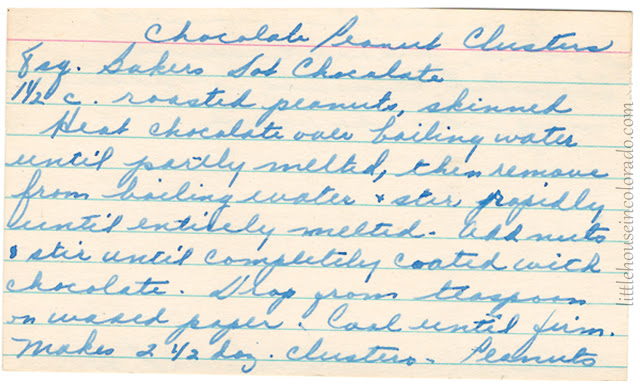 Chocolate Peanut Clusters
8 sq. Bakers Dot Chocolate
1 1/2 c. roasted peanuts, skinned
Heat chocolate over boiling water
until partly melted, then remove
from boiling water & stir rapidly
until entirely melted. Add nuts
& stir until completely coated with
chocolate. Drop from teaspoon
on waxed paper. Cool until firm.
Makes 2 1/2 doz. clusters. Peanuts
littlehouseincolorado.com